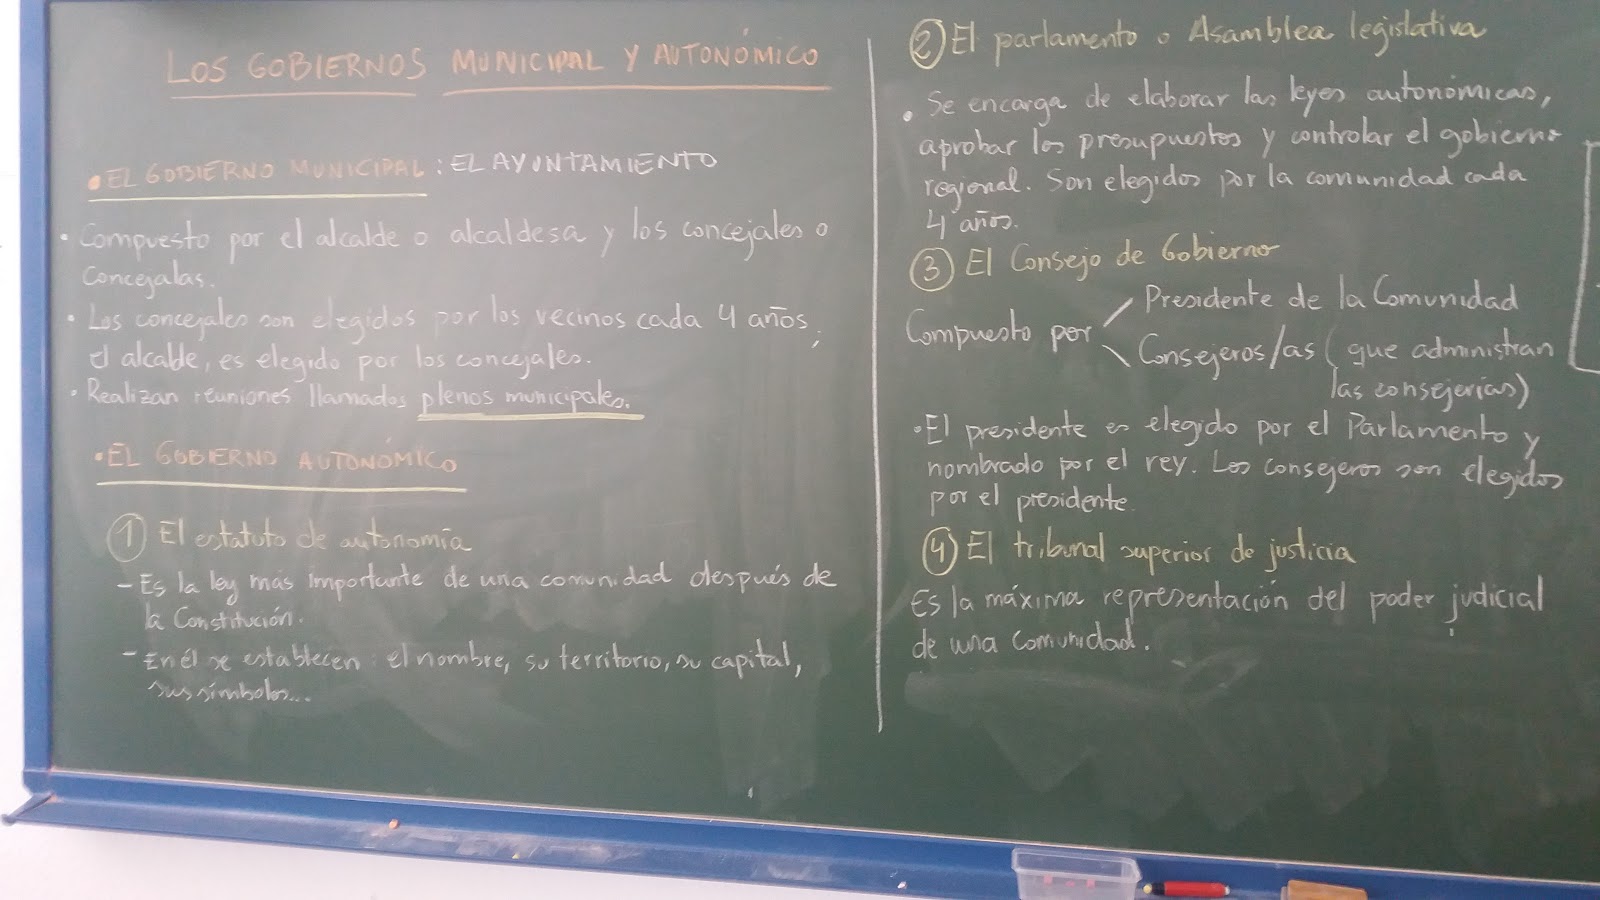 LOS GOBIERNOS MUNICIPAL Y AUTONÓMICO
• EL GOBIERNO MUNICIPAL : EL AYUNTAMIENTO
• Compuesto por el alcalde o alcaldesa y los concejales o
concejalas.
• Los concejales son elegidos por los vecinos cada 4 años,
el alcalde, es elegido por los concejales.
• Realizan reuniones llamados plenos municipales.
• EL GOBIERNO AUTONÓMICO
① El estatuto de autonomía
- Es la ley más importante de una comunidad después de
la Constitución.
- En él se establecen : el nombre, su territorio, su capital,
sus símbolos...
② El parlamento o Asamblea legislativa
• Se encarga de elaborar las leyes autonómicas,
aprobar los presupuestos y controlar el gobierno
regional. Son elegidos por la comunidad cada
4 años.
③ El Consejo de Gobierno
Presidente de la Comunidad
Compuesto por
Consejeros/as ( que administran
las consejerías)
• El presidente es elegido por el Parlamento y
nombrado por el rey. Los consejeros son elegidos
por el presidente.
④ El tribunal superior de justicia
Es la máxima representación del poder judicial
de una comunidad.